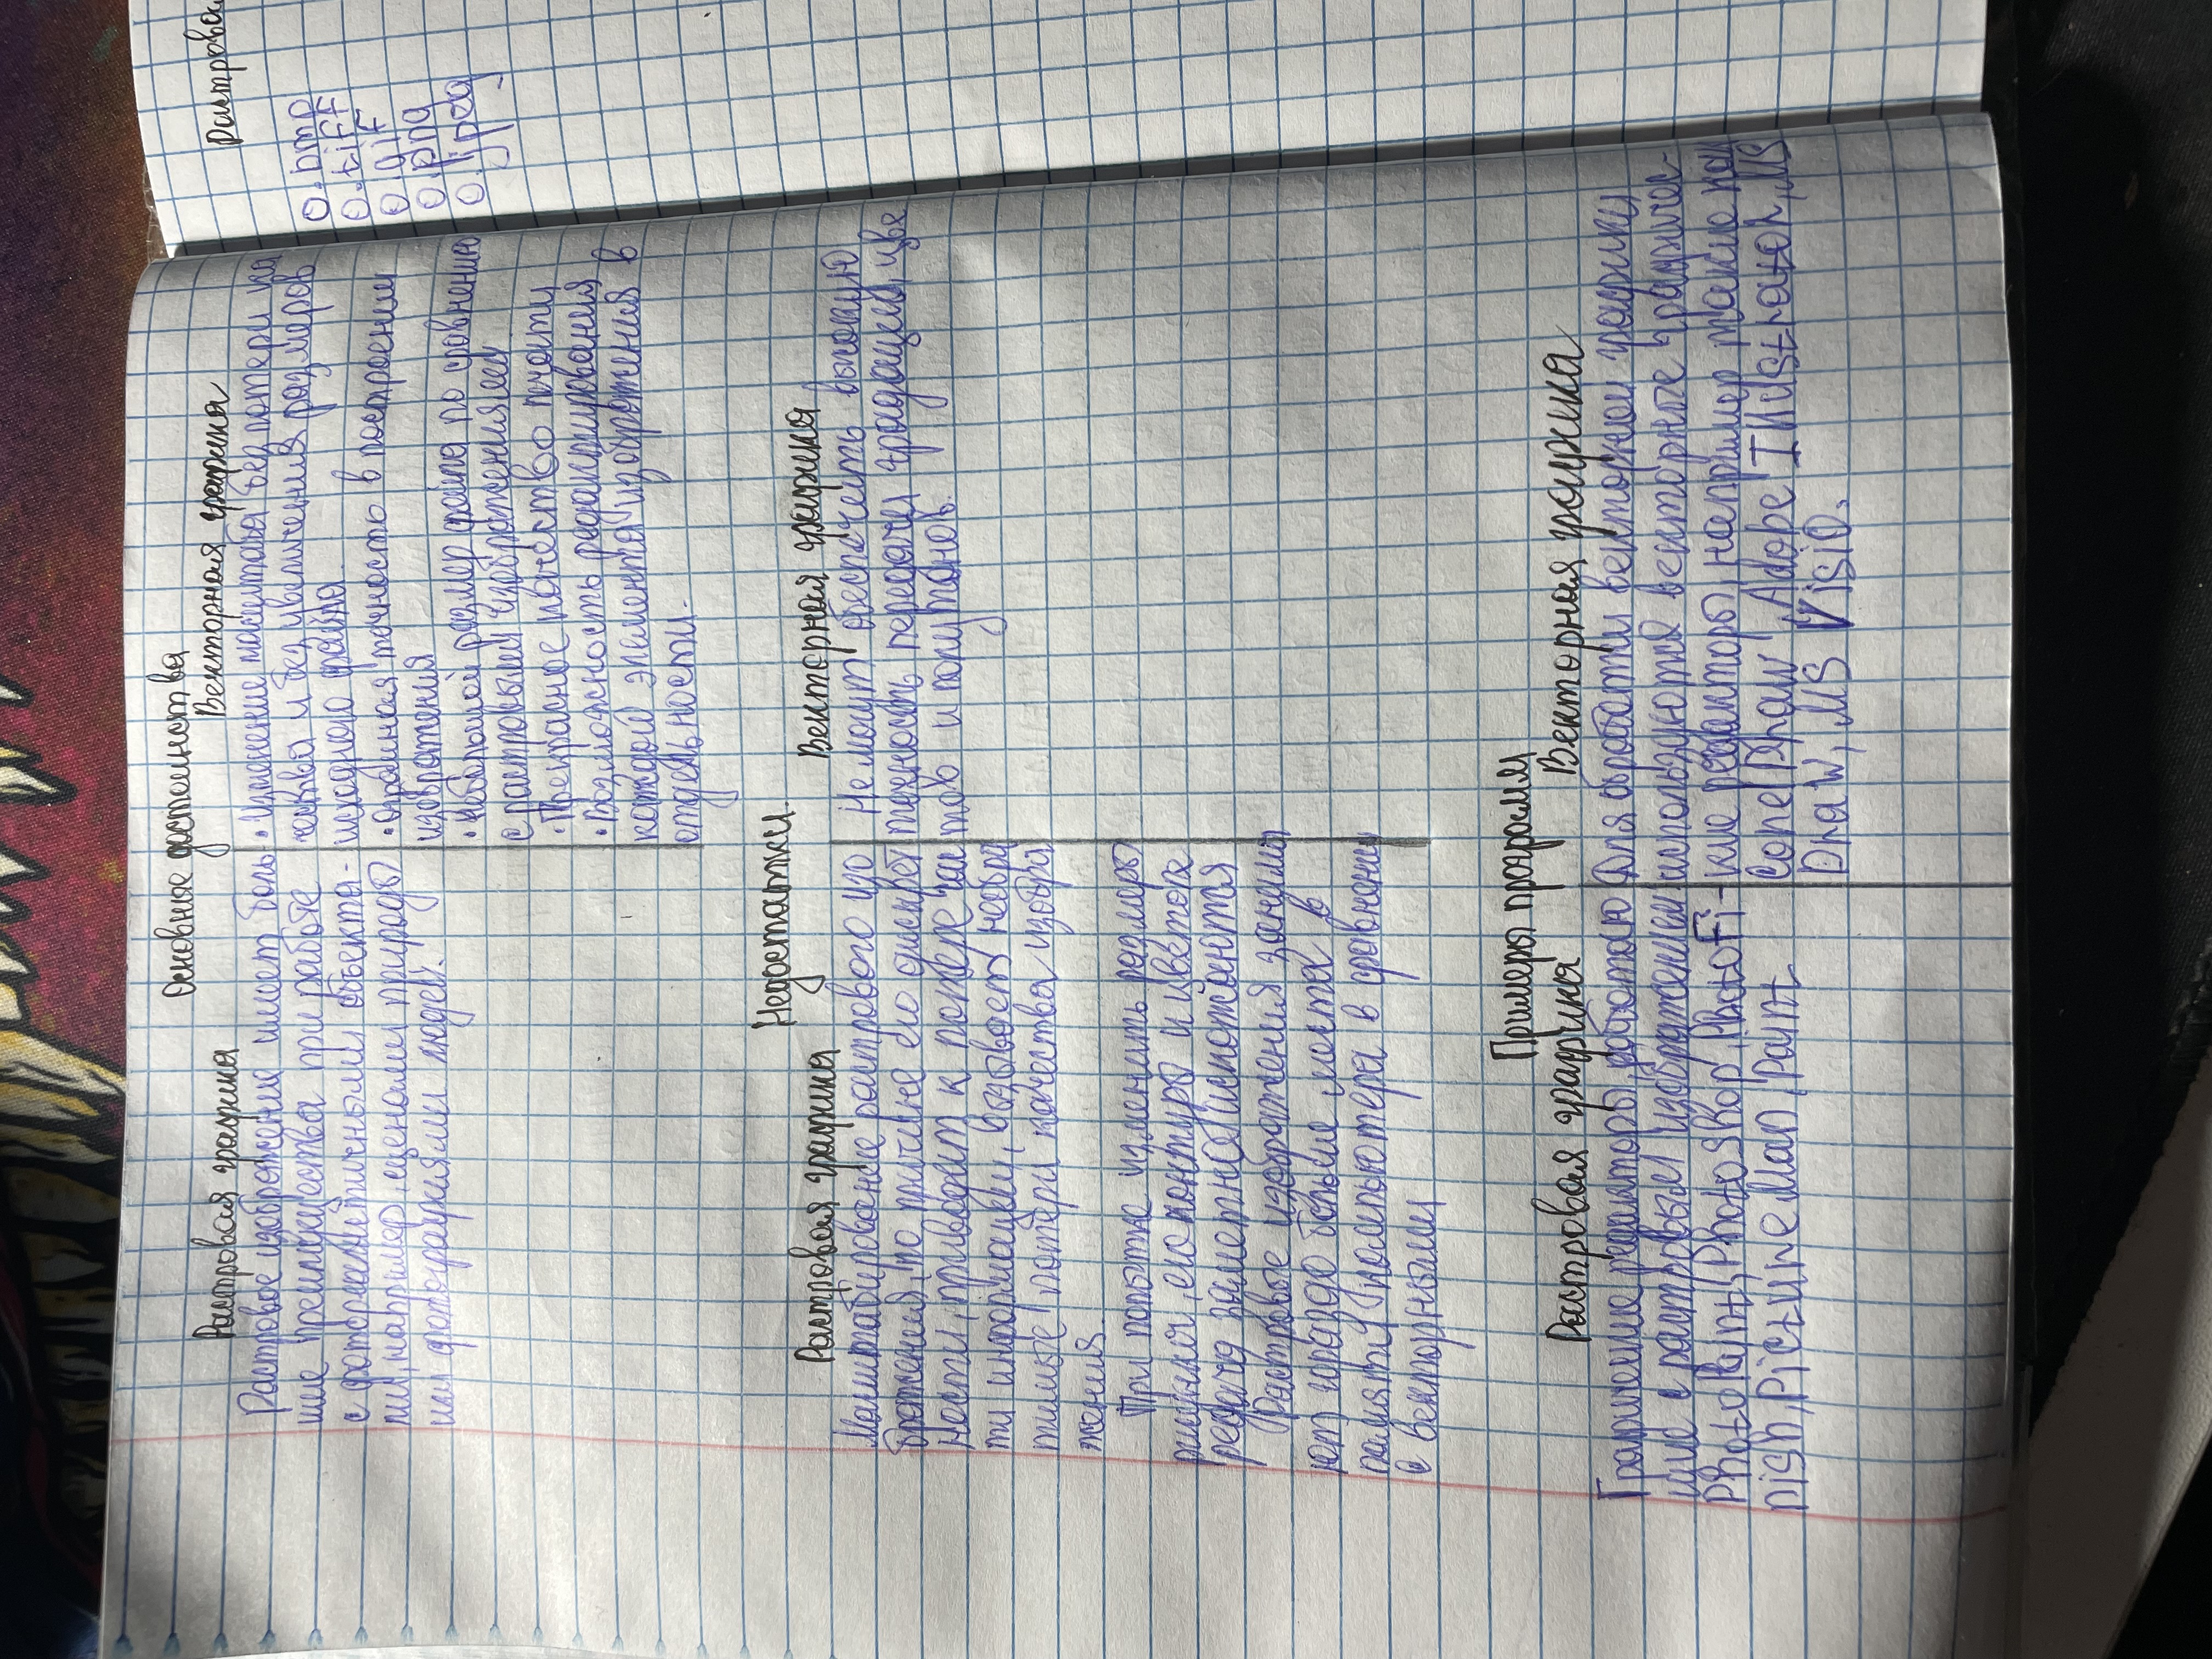 Основные достоинства
Растровая графика
Растровое изображение имеет боль-
шие преимущества при работе
с фотореалистичными объекта-
ми, например, сценами природы
или фотографиями людей.
Векторная графика
• изменение масштаба без потери ка
чества и без увеличения размеров
исходного файла.
• огромная точность в построении
изображения
• Небольшой размер файла по сравнению
с растровыми изображениями
• Прекрасное качество печати
• Возможность редактирования
каждой элемента изображения в
отдельности.
Недостатки.
Растровая графика
Масштабирование растрового изо
бражения, по причине его дискрет
ности, приводит к потере час
ти информации, вызывает
тимые потери качества изобра
жения.
При попытке изменить размеры
рисунка, его контуры и цветопе
редача заметно искажаются
Растровые изображения занима
ют гораздо больше места в
памяти компьютера в сравнении
с векторными
Векторная графика
Не могут обеспечить высокую
точность передачи градаций цве
тов и полутонов.
Примеры программ
Растровая графика
Графические редакторы, работаю
щие с растровым изображением:
PhotoPaint, Photoshop, PhotoFi-
nish, Picture Man, Paint
Векторная графика
Для обработки векторной графики
используются векторные графичес-
кие редакторы, например такие как
Corel Draw, Adobe Illustrator, MS
Draw, MS Visio.
o.bmp
o.tiff
o.gif
o.png
o.jpeg